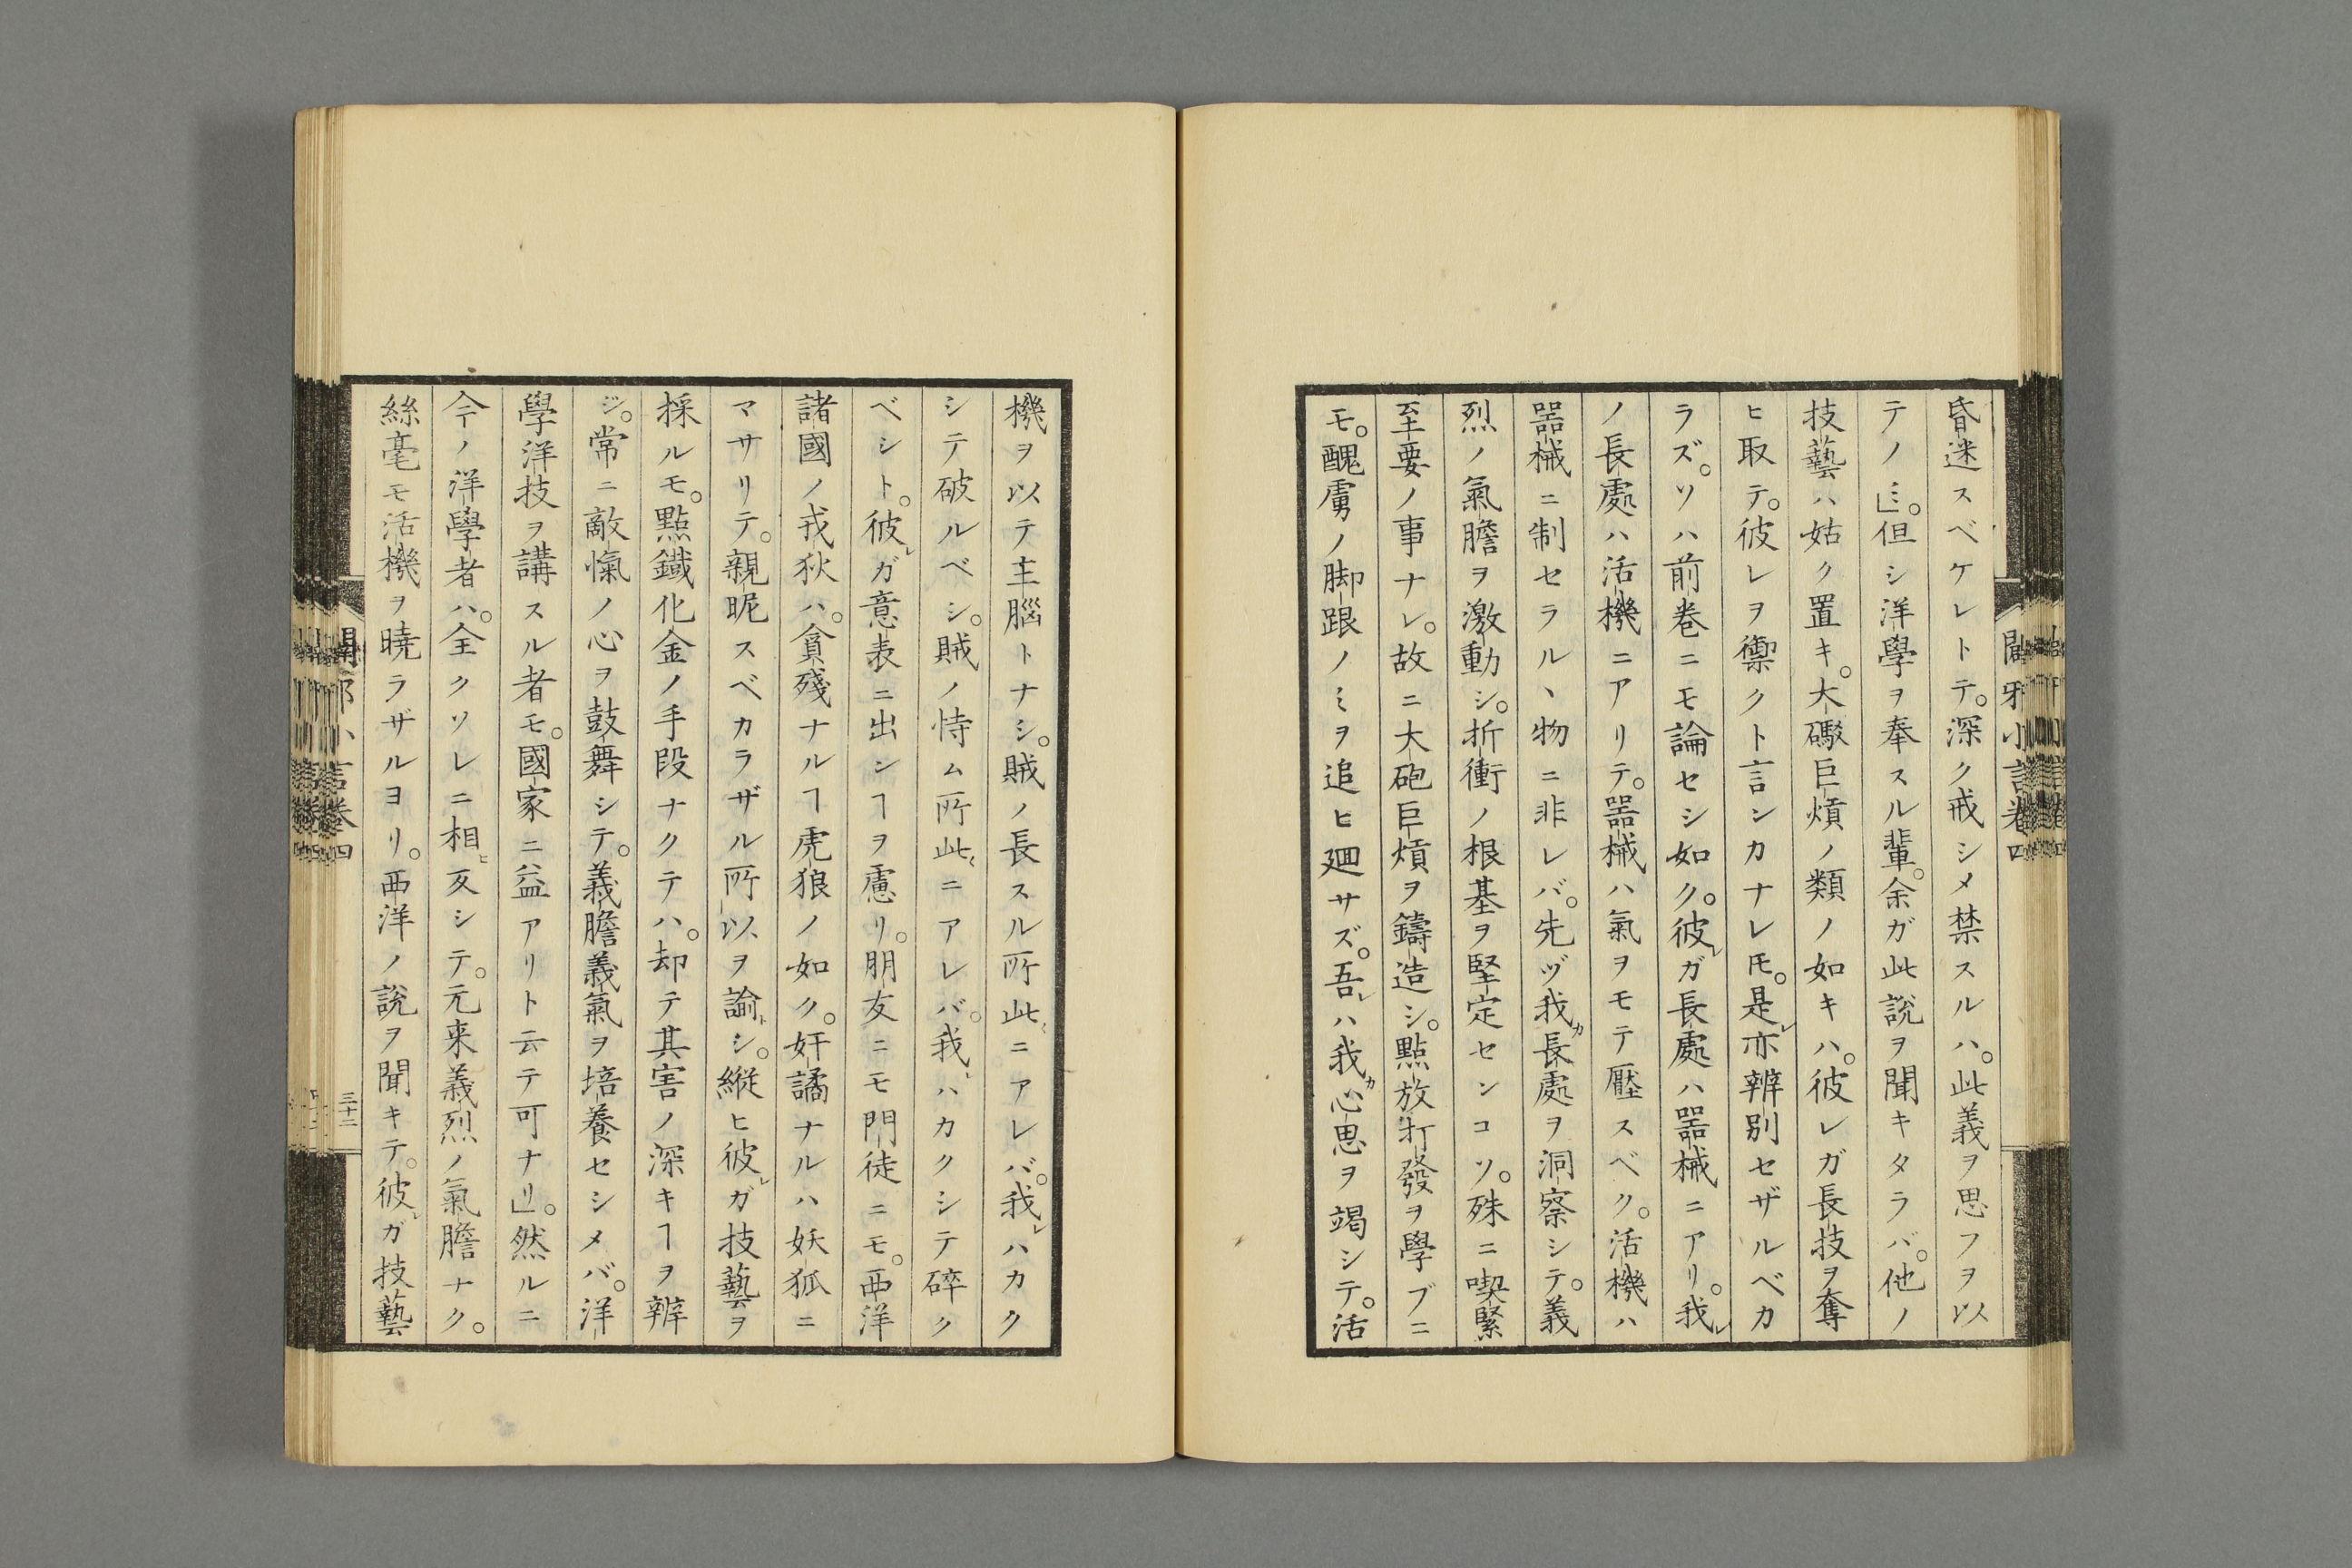 昏迷スベケレトテ。深ク戒シメ禁スルハ。此義ヲ思フヲ以
テノミ」。但シ洋學ヲ奉スル輩。余ガ此說ヲ聞キタラバ。他ノ
技藝ハ姑ク置キ。大礟巨熕ノ類ノ如キハ。彼レガ長技ヲ奪
ヒ取テ。彼レヲ禦クト言ンカナレ𪜈。是レ亦辨別セザルベカ
ラズ。ソハ前卷ニモ論セシ如ク。彼レガ長處ハ器械ニアリ。我レ
ノ長處ハ活機ニアリテ。器械ハ氣ヲモテ壓スベク。活機ハ
器械ニ制セラルヽ物ニ非レバ。先ヅ我カ長處ヲ洞察シテ。義
烈ノ氣膽ヲ激動シ。折衝ノ根基ヲ堅定センコソ。殊ニ喫緊
至要ノ事ナレ。故ニ大砲巨熕ヲ鑄造シ。點放打發ヲ學ブニ
モ。醜虜ノ脚跟ノミヲ追ヒ廻サズ。吾レハ我カ心思ヲ竭シテ。活
機ヲ以テ主腦トナシ。賊ノ長スル所此ニアレバ。我レハカク
シテ破ルベシ。賊ノ恃ム所此ニアレバ。我ハカクシテ碎ク
ベシト。彼レガ意表ニ出シヿヲ慮リ。朋友ニモ門徒ニモ。西洋
諸國ノ戎狄ハ。貪殘ナルヿ虎狼ノ如ク。奸譎ナルハ妖狐ニ
マサリテ。親昵スベカラザル所以ヲ諭シ。縱ヒ彼レガ技藝ヲ
採ルモ。點鐵化金ノ手段ナクテハ。却テ其害ノ深キヿヲ辨
ジ。常ニ敵愾ノ心ヲ鼓舞シテ。義膽義氣ヲ培養セシメバ。洋
學洋技ヲ講スル者モ。國家ニ益アリト云テ可ナリ」。然ルニ
今ノ洋學者ハ。全クソレニ相ヒ反シテ。元来義烈ノ氣膽ナク。
絲毫モ活機ヲ曉ラザルヨリ。西洋ノ說ヲ聞キテ。彼レガ技藝
闢邪小言卷四
三十二